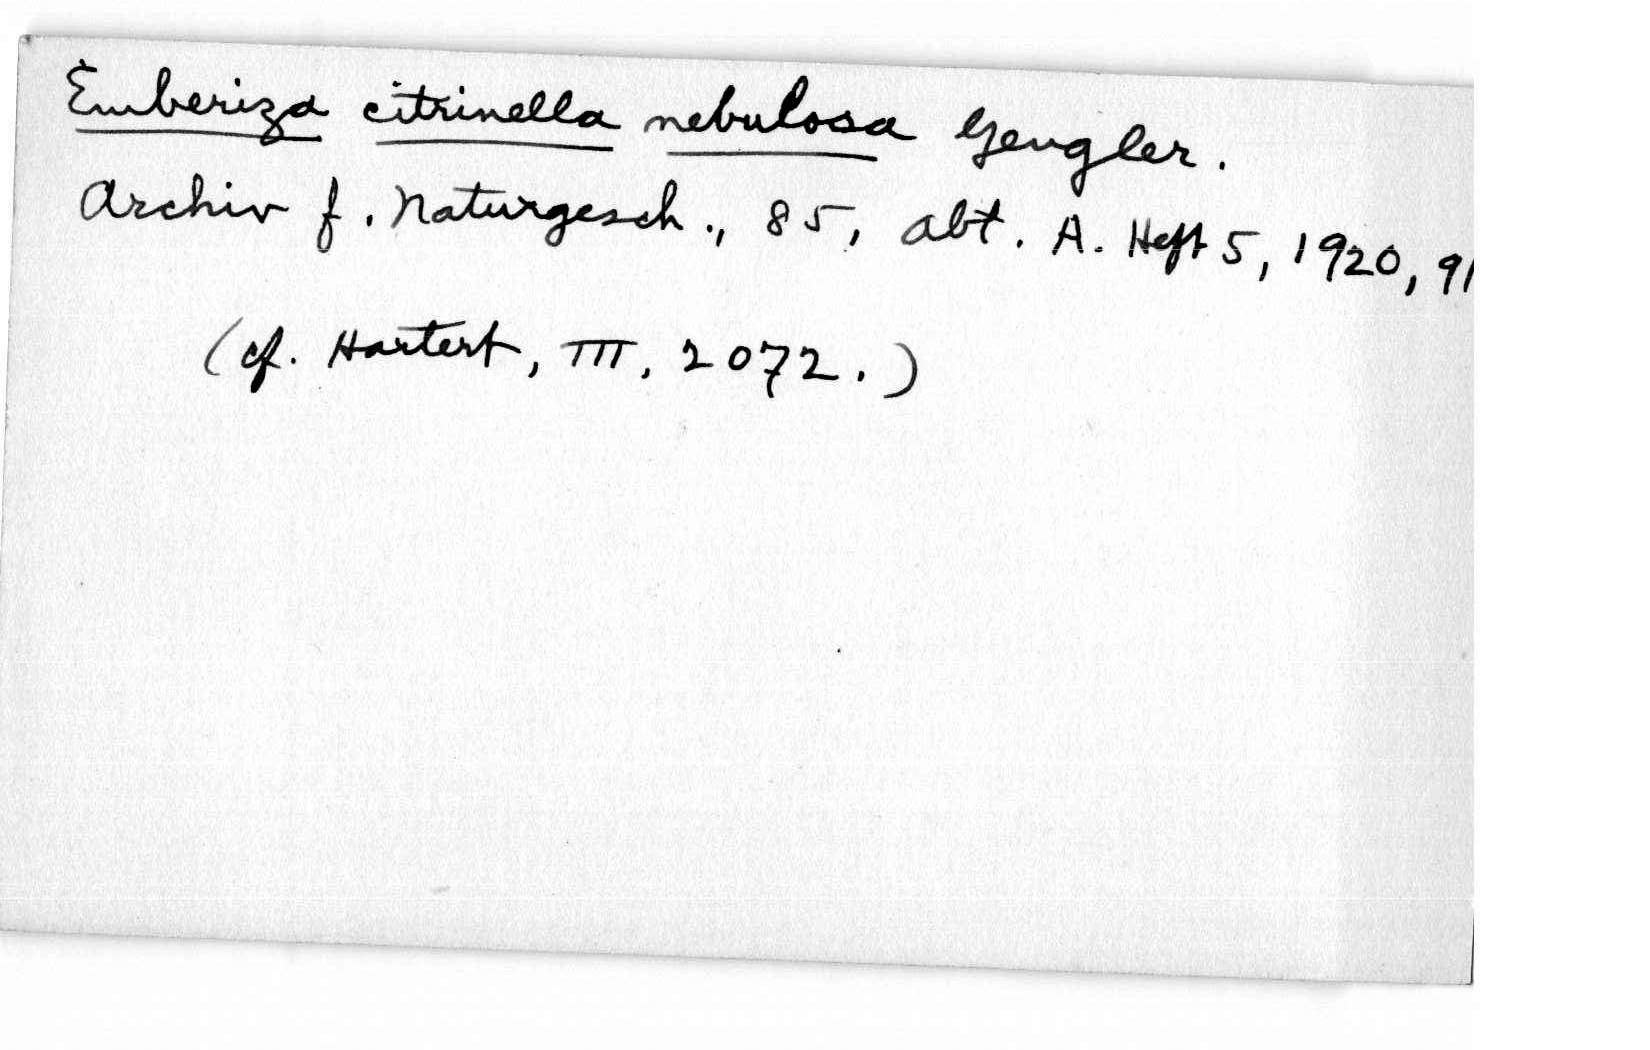 Emberiza citrinella nebulosa Gengler.
Archiv f. Naturgesch., 85, abt. A. Heft 5, 1920, 91
(cf. Hartert, III, 2072.)